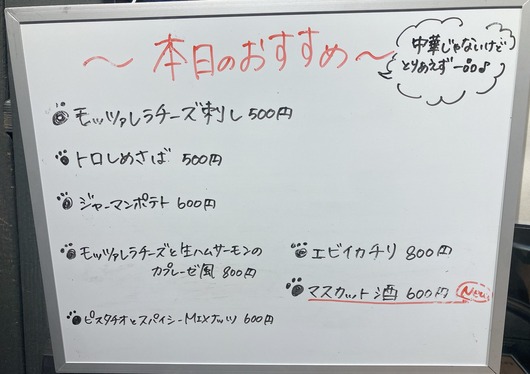 ～本日のおすすめ～
中華じゃないけど
とりあえず一品♪
モッツァレラチーズ刺し 500円
トロしめさば 500円
ジャーマンポテト 600円
モッツァレラチーズと生ハムサーモンの
カプレーゼ風 800円
ピスタチオとスパイシーMIXナッツ 600円
エビイカチリ 800円
マスカット酒 600円 New